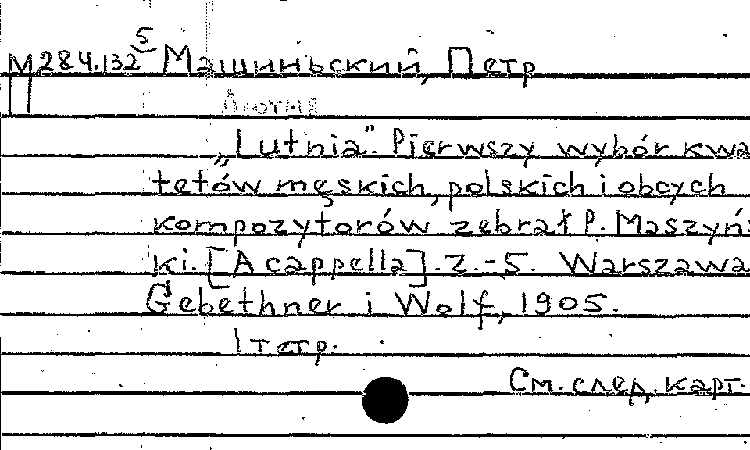 М284.132 5 Машиньский, Петр
Лютня
„Lutnia". Pierwszy wybór kwa
tetów męskich, polskich i obcych
kompozytorów zebrał P. Maszyńs
ki. [A cappella]. Z.-5. Warszawa
Gebethner i Wolf, 1905.
1 тетр.
См. след. карт.